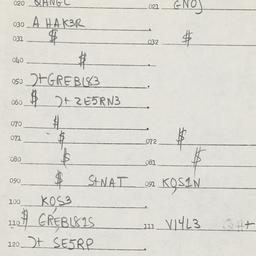 020 QANGL 021 GNOJ
030 A HAK3R
031 $ 032 #
040 #
050 )+GREBL83
060 $ )+ 2E5RN3
070 #
071 $ 072 #
080 $ 081 $
090 $ S+NAT 091 KOS1N
100 KOS3
110 $ GREBL81S 111 V14L3
120 )+ SE5RP